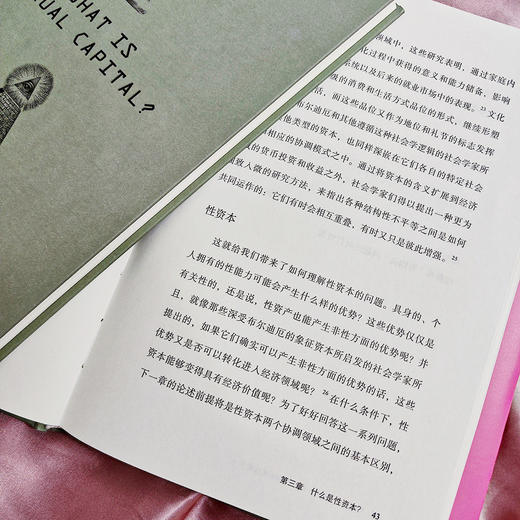 WHAT IS
UAL CAPITAL?
领域中，这些研究表明，通过家庭内
化过程中获得的意义和能力储备，影响
系统以及后来的就业市场中的表现。²³文化
级的消费和生活方式品位的形式，继续形塑
活，而这些品位又作为地位和礼节的标志发挥
布尔迪厄和其他遵循这种社会学逻辑的社会学家所
其他类型的资本，也同样深嵌在它们各自的特定社会
相应的协调模式之中。通过将资本的含义扩展到经济
的货币投资和收益之外，社会学家们得以提出一种更为
细致入微的研究方法，来指出各种结构性不平等之间是如何
共同运作的：它们有时会相互重叠，有时又只是彼此增强。²⁵
性资本
这就给我们带来了如何理解性资本的问题。具身的、个
人拥有的性能力可能会产生什么样的优势？这些优势仅仅是
有关性的，还是说，性资产也能产生非性方面的优势呢？并
且，就像那些深受布尔迪厄的象征资本所启发的社会学家所
提出的，如果它们确实可以产生非性方面的优势的话，这些
优势又是否可以转化进入经济领域呢？²⁶在什么条件下，性
资本能够变得具有经济价值呢？为了好好回答这一系列问题，
下一章的论述前提将是性资本两个协调领域之间的基本区别，
第三章 什么是性资本？ 43